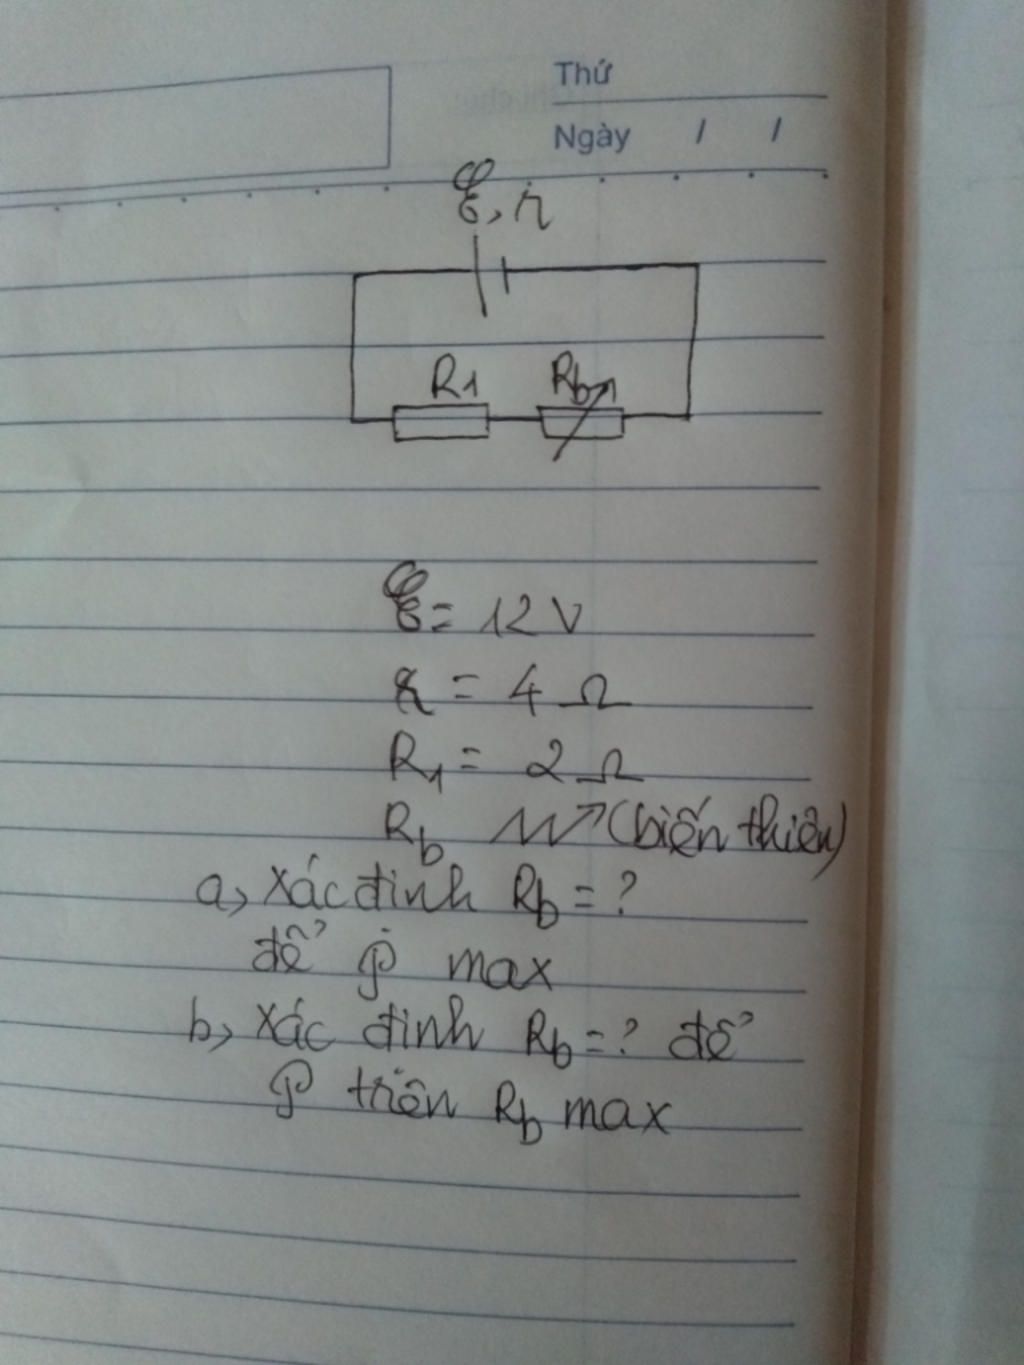 Thứ
Ngày / /
ℰ, r
R1 Rb
ℰ = 12 V
r = 4 Ω
R1 = 2 Ω
Rb (biến thiên)
a, Xác định Rb = ?
để P max
b, Xác định Rb = ? để
P trên Rb max